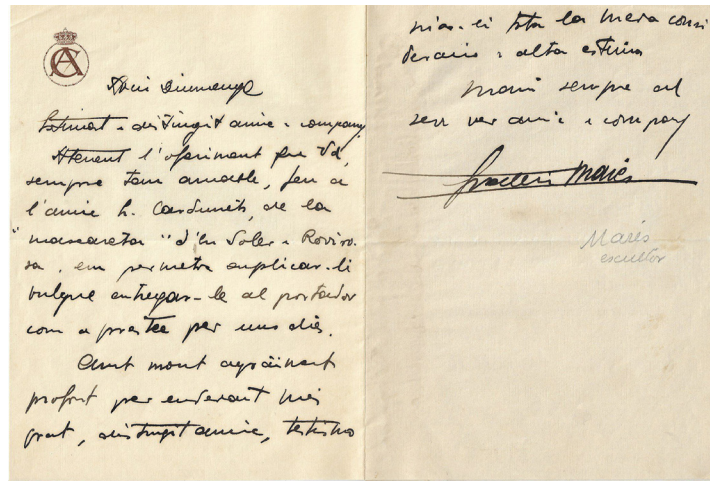 CA
Avui diumenge
Estimat e distingit amic e company
Atenent l'oferiment que Vd,
sempre tam amable, feu a
l'amic h. Cardunets, de la
"mascareta" d'en Soler e Roviro-
sa, em permeto suplicar-li
vulgue entregar-le al portador
com a prestec per uns dies.
Amb mont agraiment
profost per endevant mes
grat, distingit amic, testimo
nias-li tota la meva consi
deracio e alta estima
Mani sempre al
seu ver amic e company
Frederic Marés
Marés
escultor